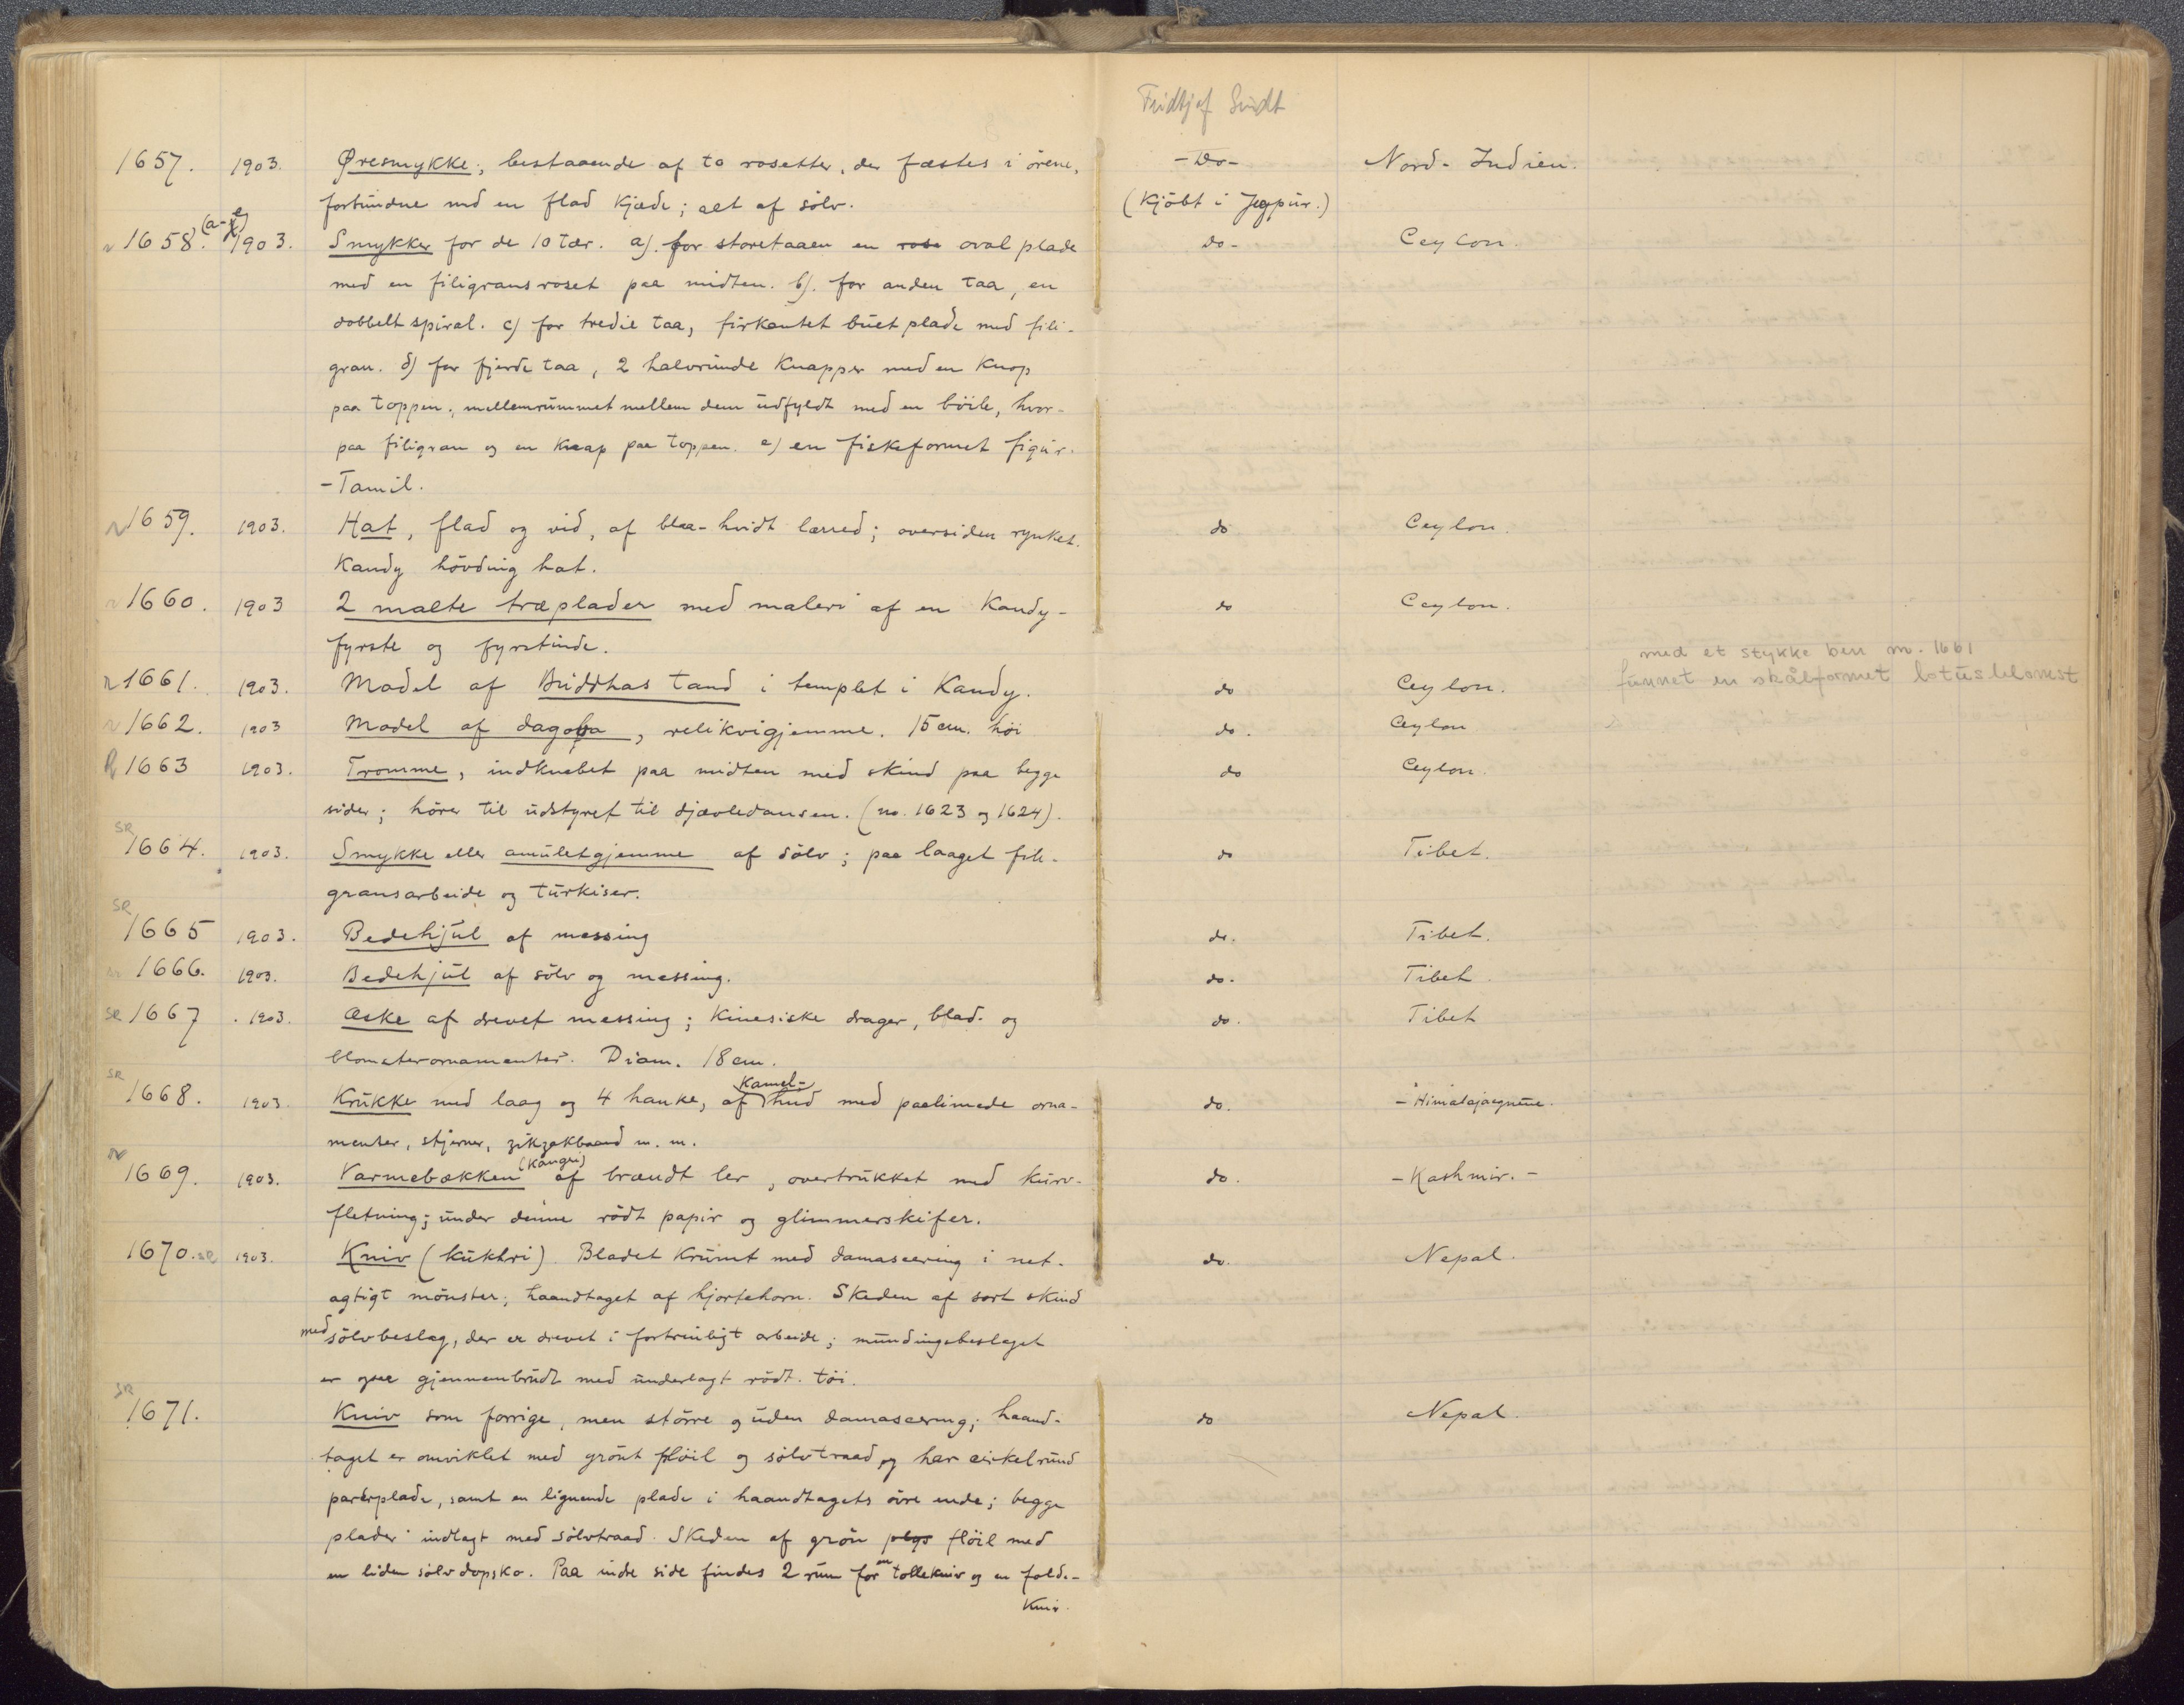 Fridtjof Sundt
1657. 1903. Øresmykke; bestaaende af to rosetter, der fæstes i örene, -Do- Nord-Indien.
forbundne med en flad kjæde; alt af sölv. (Kjöbt i Jeypur.)
1658. (a-e) 1903. Smykker for de 10 tær. a). for storetaaen en rose oval plade do- Ceylon.
med en filigransroset paa midten. b). for anden taa, en
dobbelt spiral. c) for tredie taa, firkantet buet plade med fili-
gran. d) for fjerde taa, 2 halvrunde knapper med en knop
paa toppen; mellemrummet mellem dem udfyldt med en böile, hvor-
paa filigran og en knap paa toppen. e) en fiskeformet figur.
- Tamil.
1659. 1903. Hat, flad og vid, af blaa-hvidt lærred; oversiden rynket. do Ceylon.
Kandy hövding hat.
1660. 1903 2 malte træplader med maleri af en Kandy- do Ceylon.
fyrste og fyrstinde.
med et stykke ben m. 1661
1661. 1903. Model af Buddhas tand i templet i Kandy. do Ceylon. funnet en skålformet lotusblomst
1662. 1903 Model af dagoba, relikvigjemme. 15 cm. höi do. Ceylon
1663 1903. Tromme, indknebet paa midten med skind paa begge do Ceylon.
sider; hörer til udstyret til djævledansen. (no. 1623 og 1624).
SR
1664. 1903. Smykke eller amuletgjemme af sölv; paa laaget fili- do Tibet.
gransarbeide og turkiser.
SR
1665 1903. Bedehjul af messing do. Tibet.
1666. 1903. Bedehjul af sölv og messing. do. Tibet.
SR 1667 1903. Æske af drevet messing; kinesiske drager, blad- og do. Tibet
blomsterornamenter. Diam. 18 cm.
SR
1668. 1903. Krukke med laag og 4 hanke, af Kamel-hud med paalimede orna- do. - Himalajaegnene.
menter, stjerner, zikzakbaand m. m.
1669. 1903. Varmebækken (Kangri) af brændt ler, overtrukket med kurv- do. - Kashmir. -
fletning; under denne rödt papir og glimmerskifer.
1670. SR 1903. Kniv (kukhri). Bladet krumt med damascering i net- do. Nepal.
agtigt mönster; haandtaget af hjortehorn. Skeden af sort skind
med sölvbeslag, der er drevet i fortrinligt arbeide; mundingsbeslaget
er ogsaa gjennembrudt med underlagt rödt töi.
SR
1671. Kniv som forrige, men större og uden damascering; haand- do Nepal.
taget er omviklet med grönt flöil og sölvtraad og har cirkelrund
parérplade, samt en lignende plade i haandtagets övre ende; begge
plader indlagt med sölvtraad. Skeden af grön plys flöil med
en liden sölvdopsko. Paa indre side findes 2 rum for en tollekniv og en folde-
kniv.